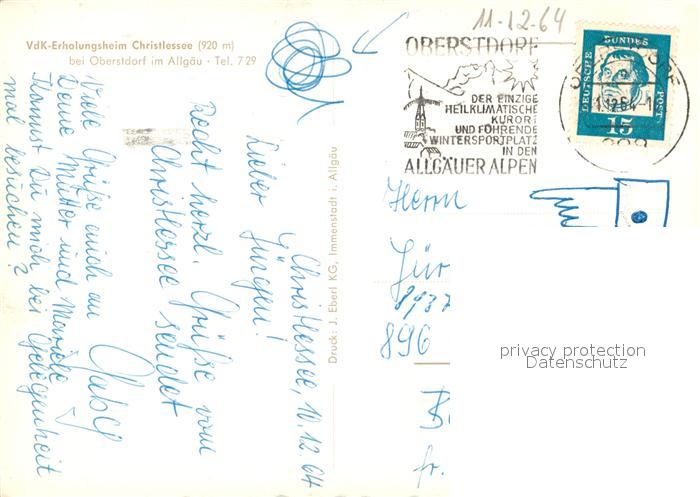 VdK-Erholungsheim Christlessee (920 m)
bei Oberstdorf im Allgäu · Tel. 729
11-12-64
OBERSTDORF
DER EINZIGE
HEILKLIMATISCHE
KURORT
UND FÜHRENDE
WINTERSPORTPLATZ
IN DEN
ALLGÄUER ALPEN
DEUTSCHE BUNDESPOST
15
Christlessee, 10.12.64
Lieber Jürgen!
Recht herzl. Grüße vom
Christlessee sendet
Gaby
Viele Grüße auch an
Deine Mutter und
Kannst Du mich bei Gelegenheit
mal besuchen?
Druck: J. Eberl KG, Immenstadt i. Allgäu
Herrn
Jür
896
privacy protection
Datenschutz
fr.